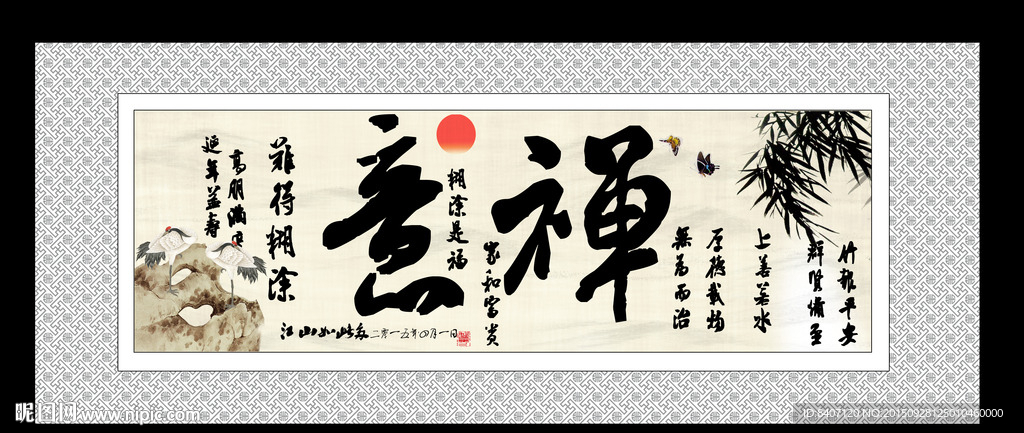 竹報平安
群賢備至
上善若水
厚德載物
無為而治
禅意
家和富贵
糊涂是福
難得糊涂
高朋满座
延年益寿
江山如此多
二零一五年四月一日
昵图网 www.nipic.com
ID:8407120 NO:20150928125010460000